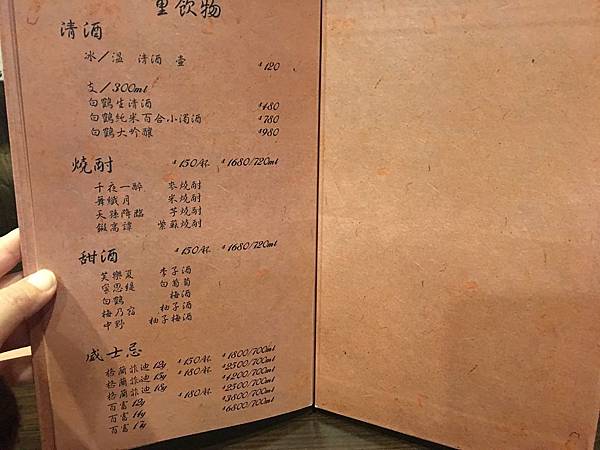 里飲物
清酒
冰／溫 清酒 壺 $120
支／300ml
白鶴生清酒 $480
白鶴純米百合小濁酒 $780
白鶴大吟釀 $980
燒酎 $150/At. $1680/720ml
千夜一醉 麥燒酎
舞織月 米燒酎
天孫降臨 芋燒酎
鍛高譚 紫蘇燒酎
甜酒 $150/At. $1680/720ml
芙樂夏 李子酒
寍思緹 白葡萄
白鶴 梅酒
梅乃宿 柚子酒
中野 柚子梅酒
威士忌
格蘭菲迪 12y $150/At. $1800/700ml
格蘭菲迪 15y $180/At. $2500/700ml
格蘭菲迪 18y $4200/700ml
百富 12y $180/At. $2500/700ml
百富 14y $3800/700ml
百富 17y $6800/700ml